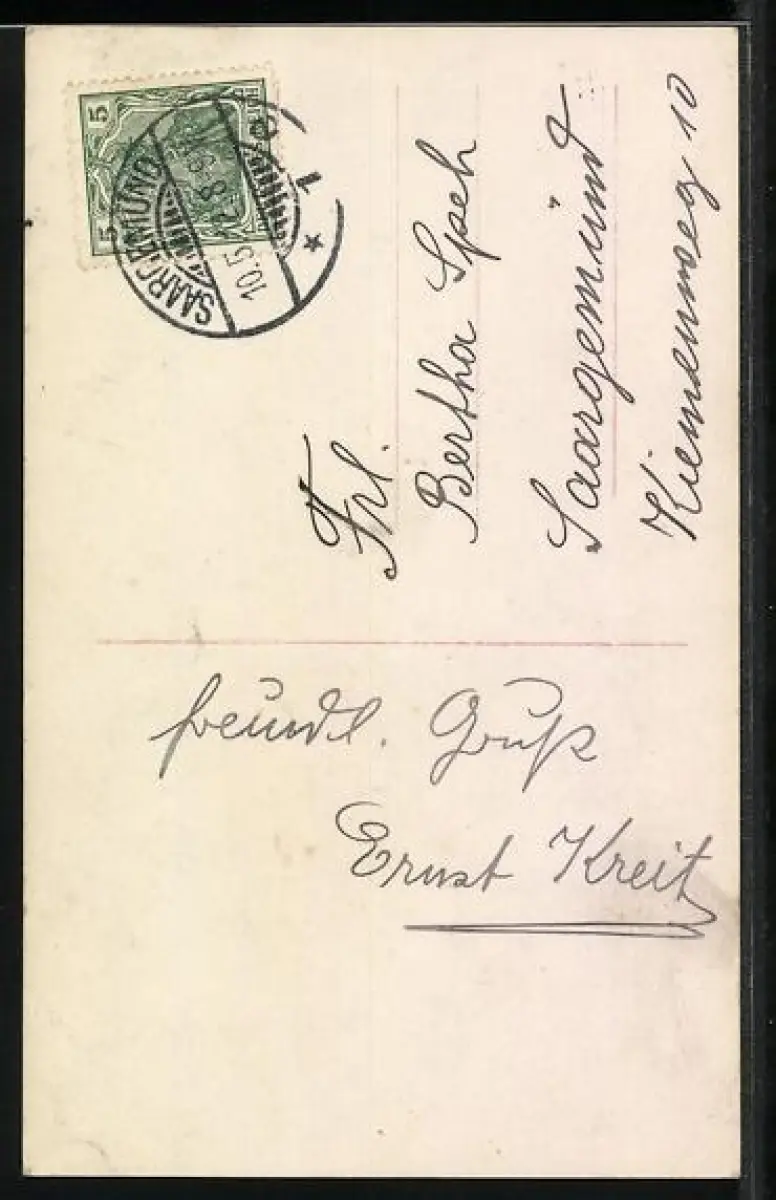 5
5
SAARGEMÜND
10.5
8-9
1
*
Frl.
Bertha Speh
Saargemünd
freundl. Gruß
Ernst Kreit